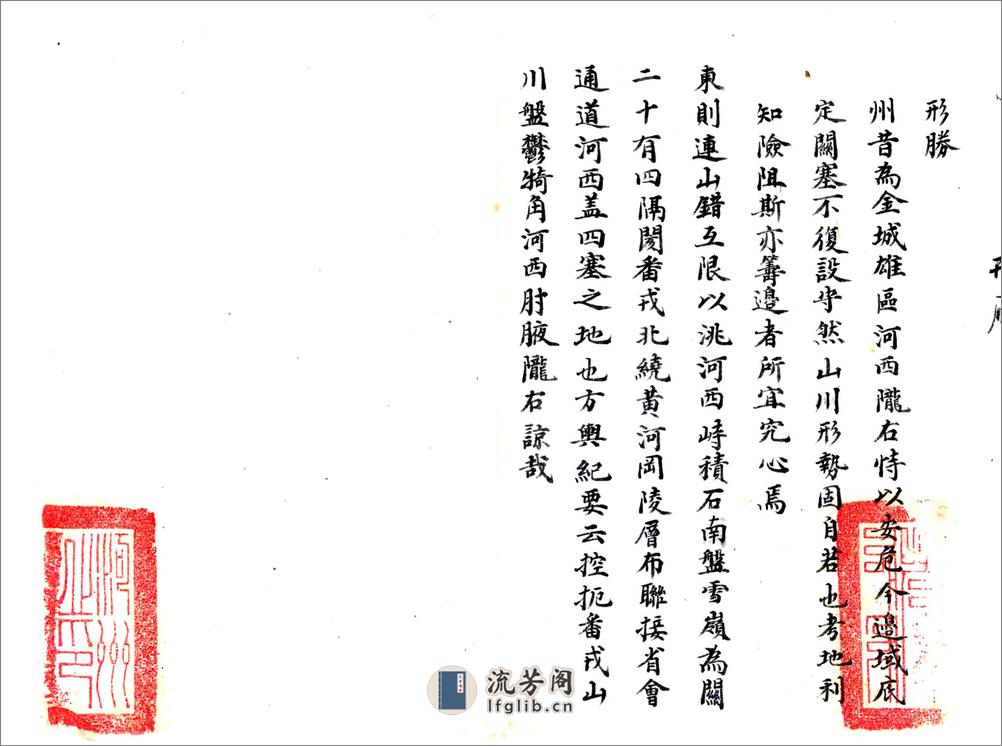 形勝
州昔為金城雄區河西隴右恃以安危今邊域底
定關塞不復設守然山川形勢固自若也考地利
知險阻斯亦籌邊者所宜究心焉
東則連山錯互限以洮河西峙積石南盤雪嶺為關
二十有四隔閡番戎北繞黃河岡陵層布聯接省會
通道河西盖四塞之地也方輿紀要云控扼番戎山
川盤鬱犄角河西肘腋隴右諒哉
河州
之印
流芳阁
lfglib.cn